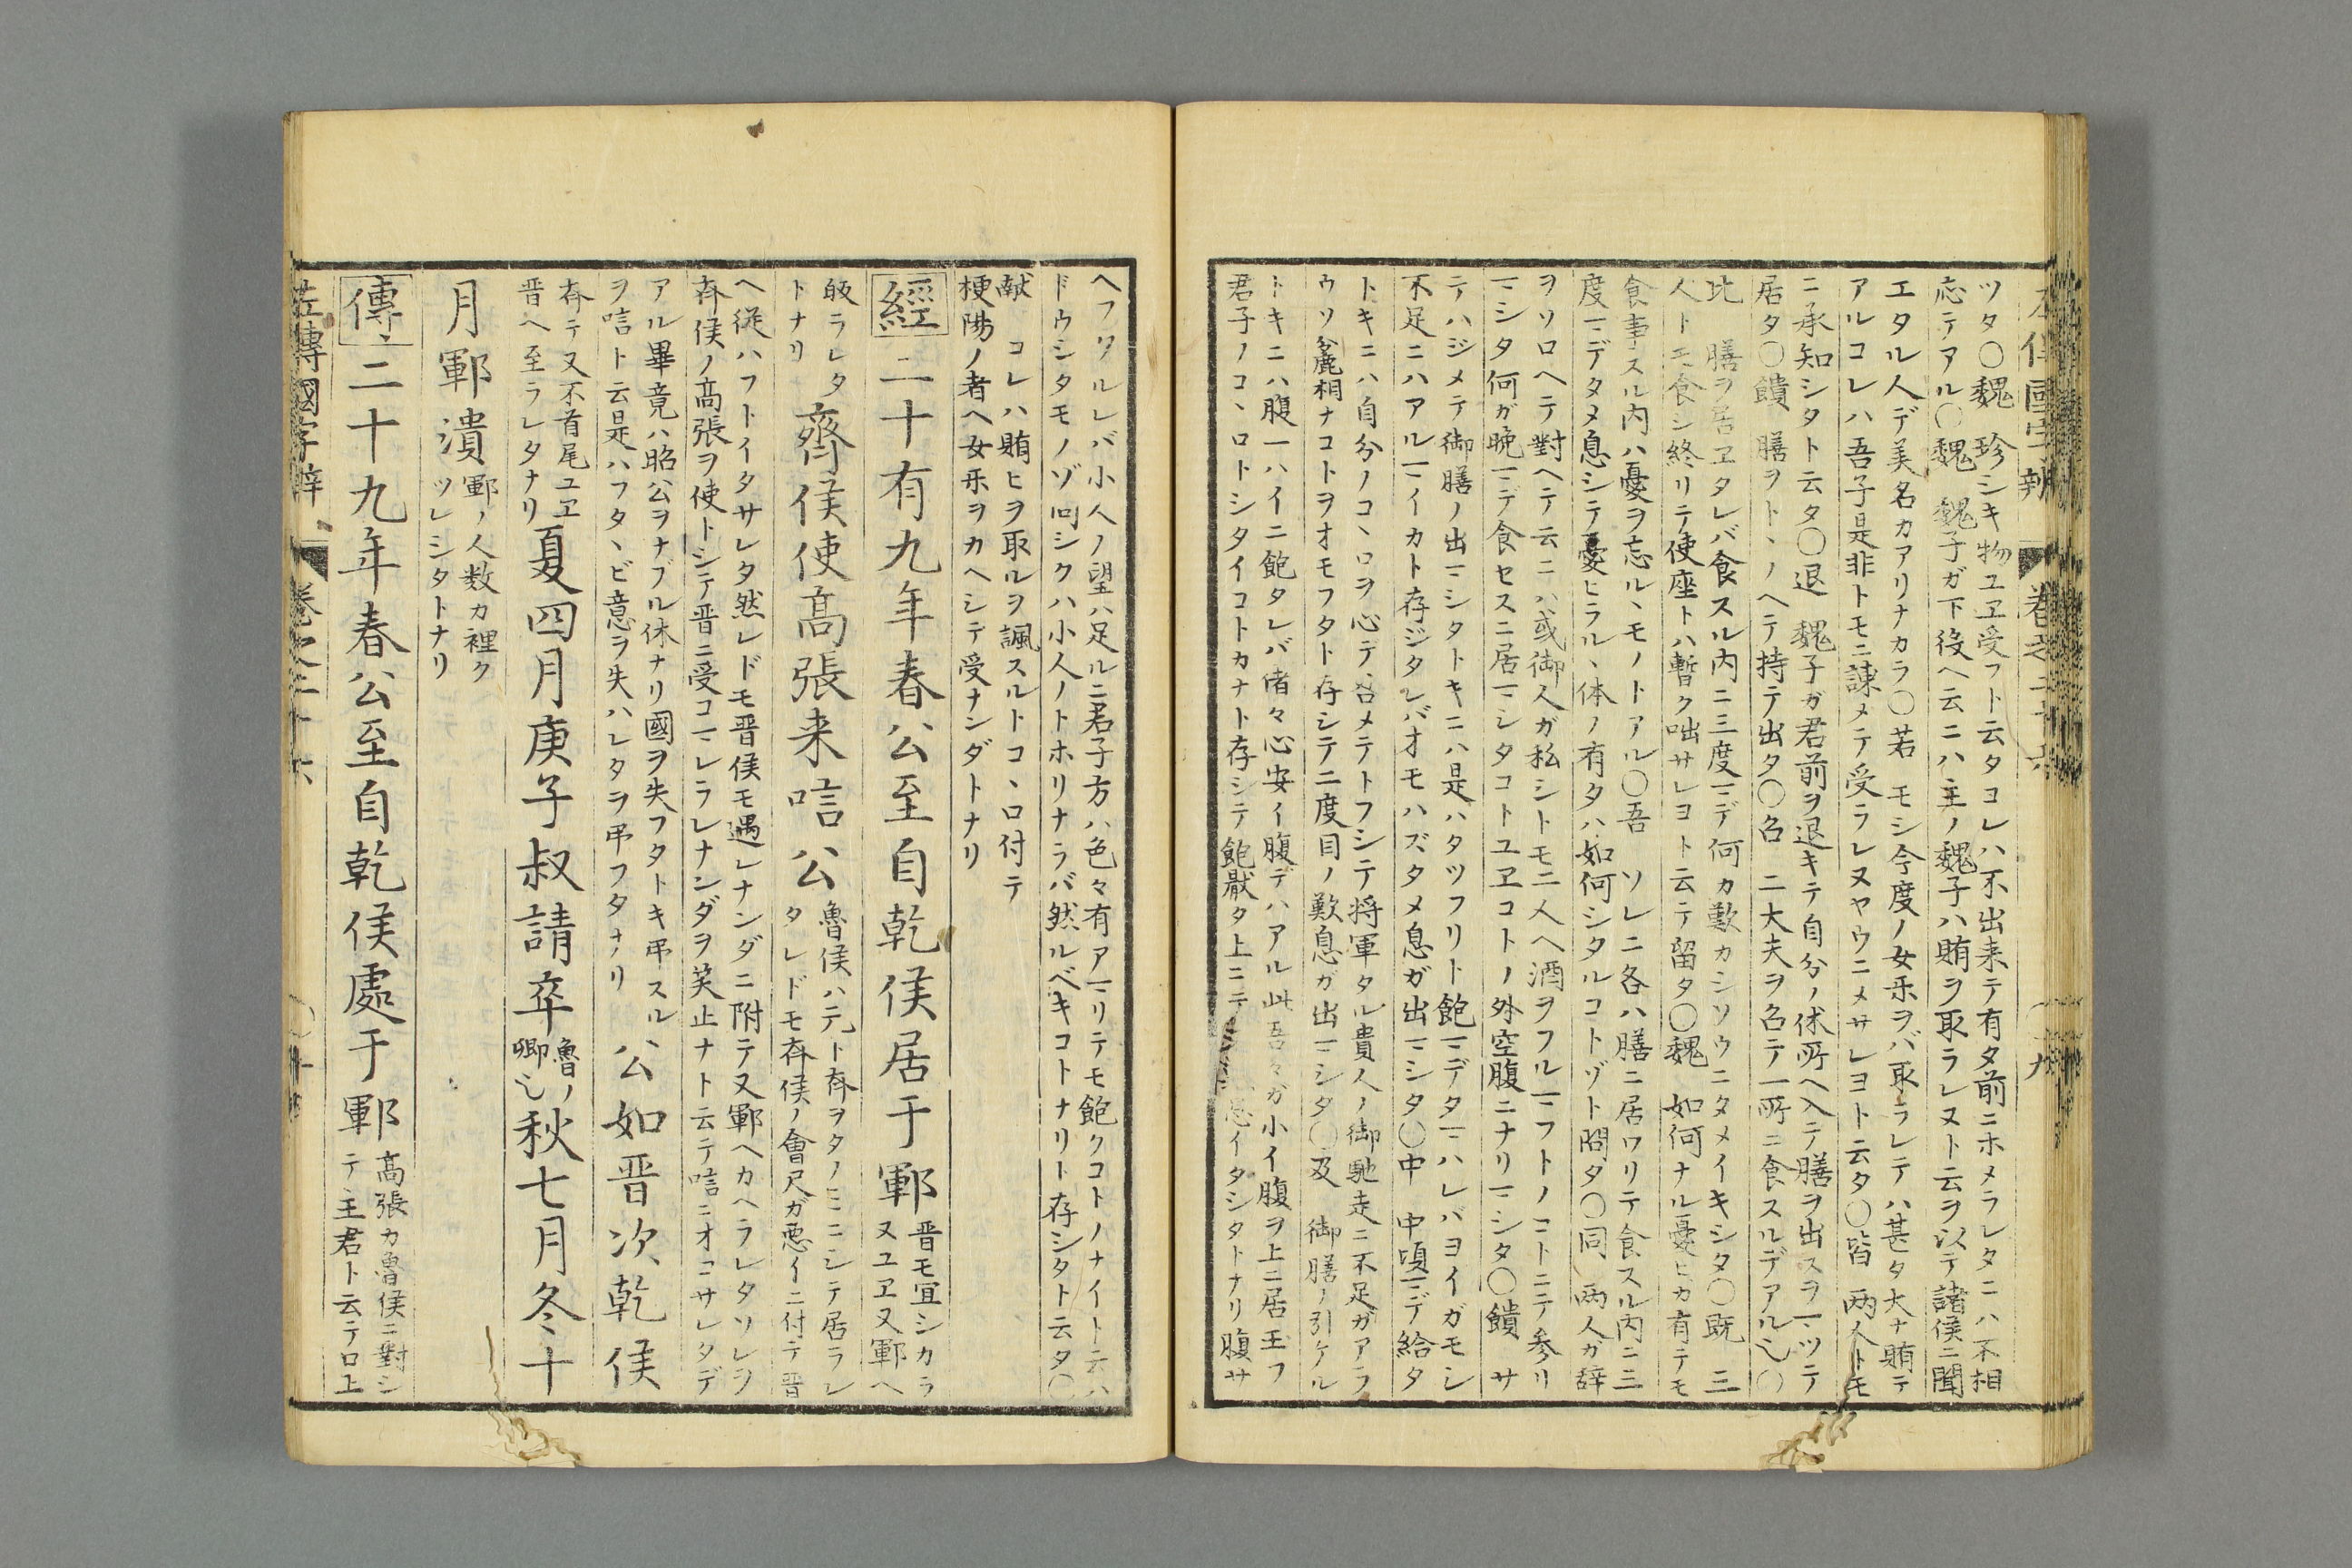 左傳國字辨 卷之二十六 〇九
ツタ〇魏 珍シキ物ユヱ受フト云タコレハ不出来テ有タ前ニホメラレタニハ不相
応テアル〇魏 魏子ガ下役ヘ云ニハ主ノ魏子ハ賄ヲ取ラレヌト云ヲ以テ諸侯ニ聞
エタル人デ美名カアリナカラ〇若 モシ今度ノ女乐ヲバ取ラレテハ甚タ大ナ賄テ
アルコレハ吾子是非トモニ諌メテ受ラレヌヤウニメサレヨト云タ〇皆 両人トモ
ニ承知シタト云タ〇退 魏子ガ君前ヲ退キテ自分ノ休所ヘ入テ膳ヲ出スヲマツテ
居タ〇饋 膳ヲトヽノヘテ持テ出タ〇召 二大夫ヲ召テ一所ニ食スルデアル也〇
比 膳ヲ居ヱタレバ食スル内ニ三度マデ何カ歎カシソウニタメイキシタ〇既 三
人トモ食シ終リテ使座トハ暫ク咄サレヨト云テ留タ〇魏 如何ナル憂ヒカ有テモ
食事スル内ハ憂ヲ忘ルヽモノトアル〇吾 ソレニ各ハ膳ニ居ワリテ食スル内ニ三
度マデタメ息シテ憂ヒラルヽ体ノ有タハ如何シタルコトゾト問タ〇同 両人カ辞
ヲソロヘテ對ヘテ云ニハ或御人ガ私シトモ二人ヘ酒ヲフルマフトノコトニテ参リ
マシタ何ガ晩マデ食セスニ居マシタコトユヱコトノ外空腹ニナリマシタ〇饋 サ
テハジメテ御膳ノ出マシタトキニハ是ハタツフリト飽マデタマハレバヨイガモシ
不足ニハアルマイカト存ジタレバオモハズタメ息ガ出マシタ〇中 中頃マデ給タ
トキニハ自分ノコヽロヲ心デ咎メテトフシテ将軍タル貴人ノ御馳走ニ不足ガアラ
ウソ麁相ナコトヲオモフタト存シテ二度目ノ歎息ガ出マシタ〇及 御膳ノ引ケル
トキニハ腹一ハイニ飽タレバ偖々心安イ腹デハアル此吾々ガ小イ腹ヲ上ニ居玉フ
君子ノコヽロトシタイコトカナト存シテ飽厭タ上ニテ 息イタシタトナリ腹サ
ヘフクルレバ小人ノ望ハ足ルニ君子方ハ色々有アマリテモ飽クコトノナイト云ハ
ドウシタモノゾ同シクハ小人ノトホリナラバ然ルベキコトナリト存シタト云タ〇
献 コレハ賄ヒヲ取ルヲ諷スルトコヽロ付テ
梗陽ノ者ヘ女乐ヲカヘシテ受ナンダトナリ
經 二十有九年春公至自乾侯居于鄆 晋モ冝シカラ
ヌユヱ又鄆ヘ
皈ラレタ
トナリ 齊侯使髙張来唁公 魯侯ハ元ト斉ヲタノミニシテ居ラレ
タレドモ斉侯ノ會尺ガ悪イニ付テ晋
ヘ従ハフトイタサレタ然レドモ晋侯モ遇レナンダニ附テ又鄆ヘカヘラレタソレヲ
斉侯ノ髙張ヲ使トシテ晋ニ受コマレラレナンダヲ笑止ナト云テ唁ニオコサレタデ
アル畢竟ハ昭公ヲナブル休ナリ國ヲ失フタトキ弔スル
ヲ唁ト云是ハフタヽビ意ヲ失ハレタヲ弔フタナリ 公如晋次乾侯
斉テ又不首尾ユヱ
晋ヘ至ラレタナリ 夏四月庚子叔請卒 魯ノ
卿也 秋七月冬十
月鄆潰 鄆ノ人数カ裡ク
ツレシタトナリ
傳 二十九年春公至自乾侯處于鄆 髙張カ魯侯ニ對シ
テ主君ト云テロ上
左傳國字辨 卷之二十六 〇十